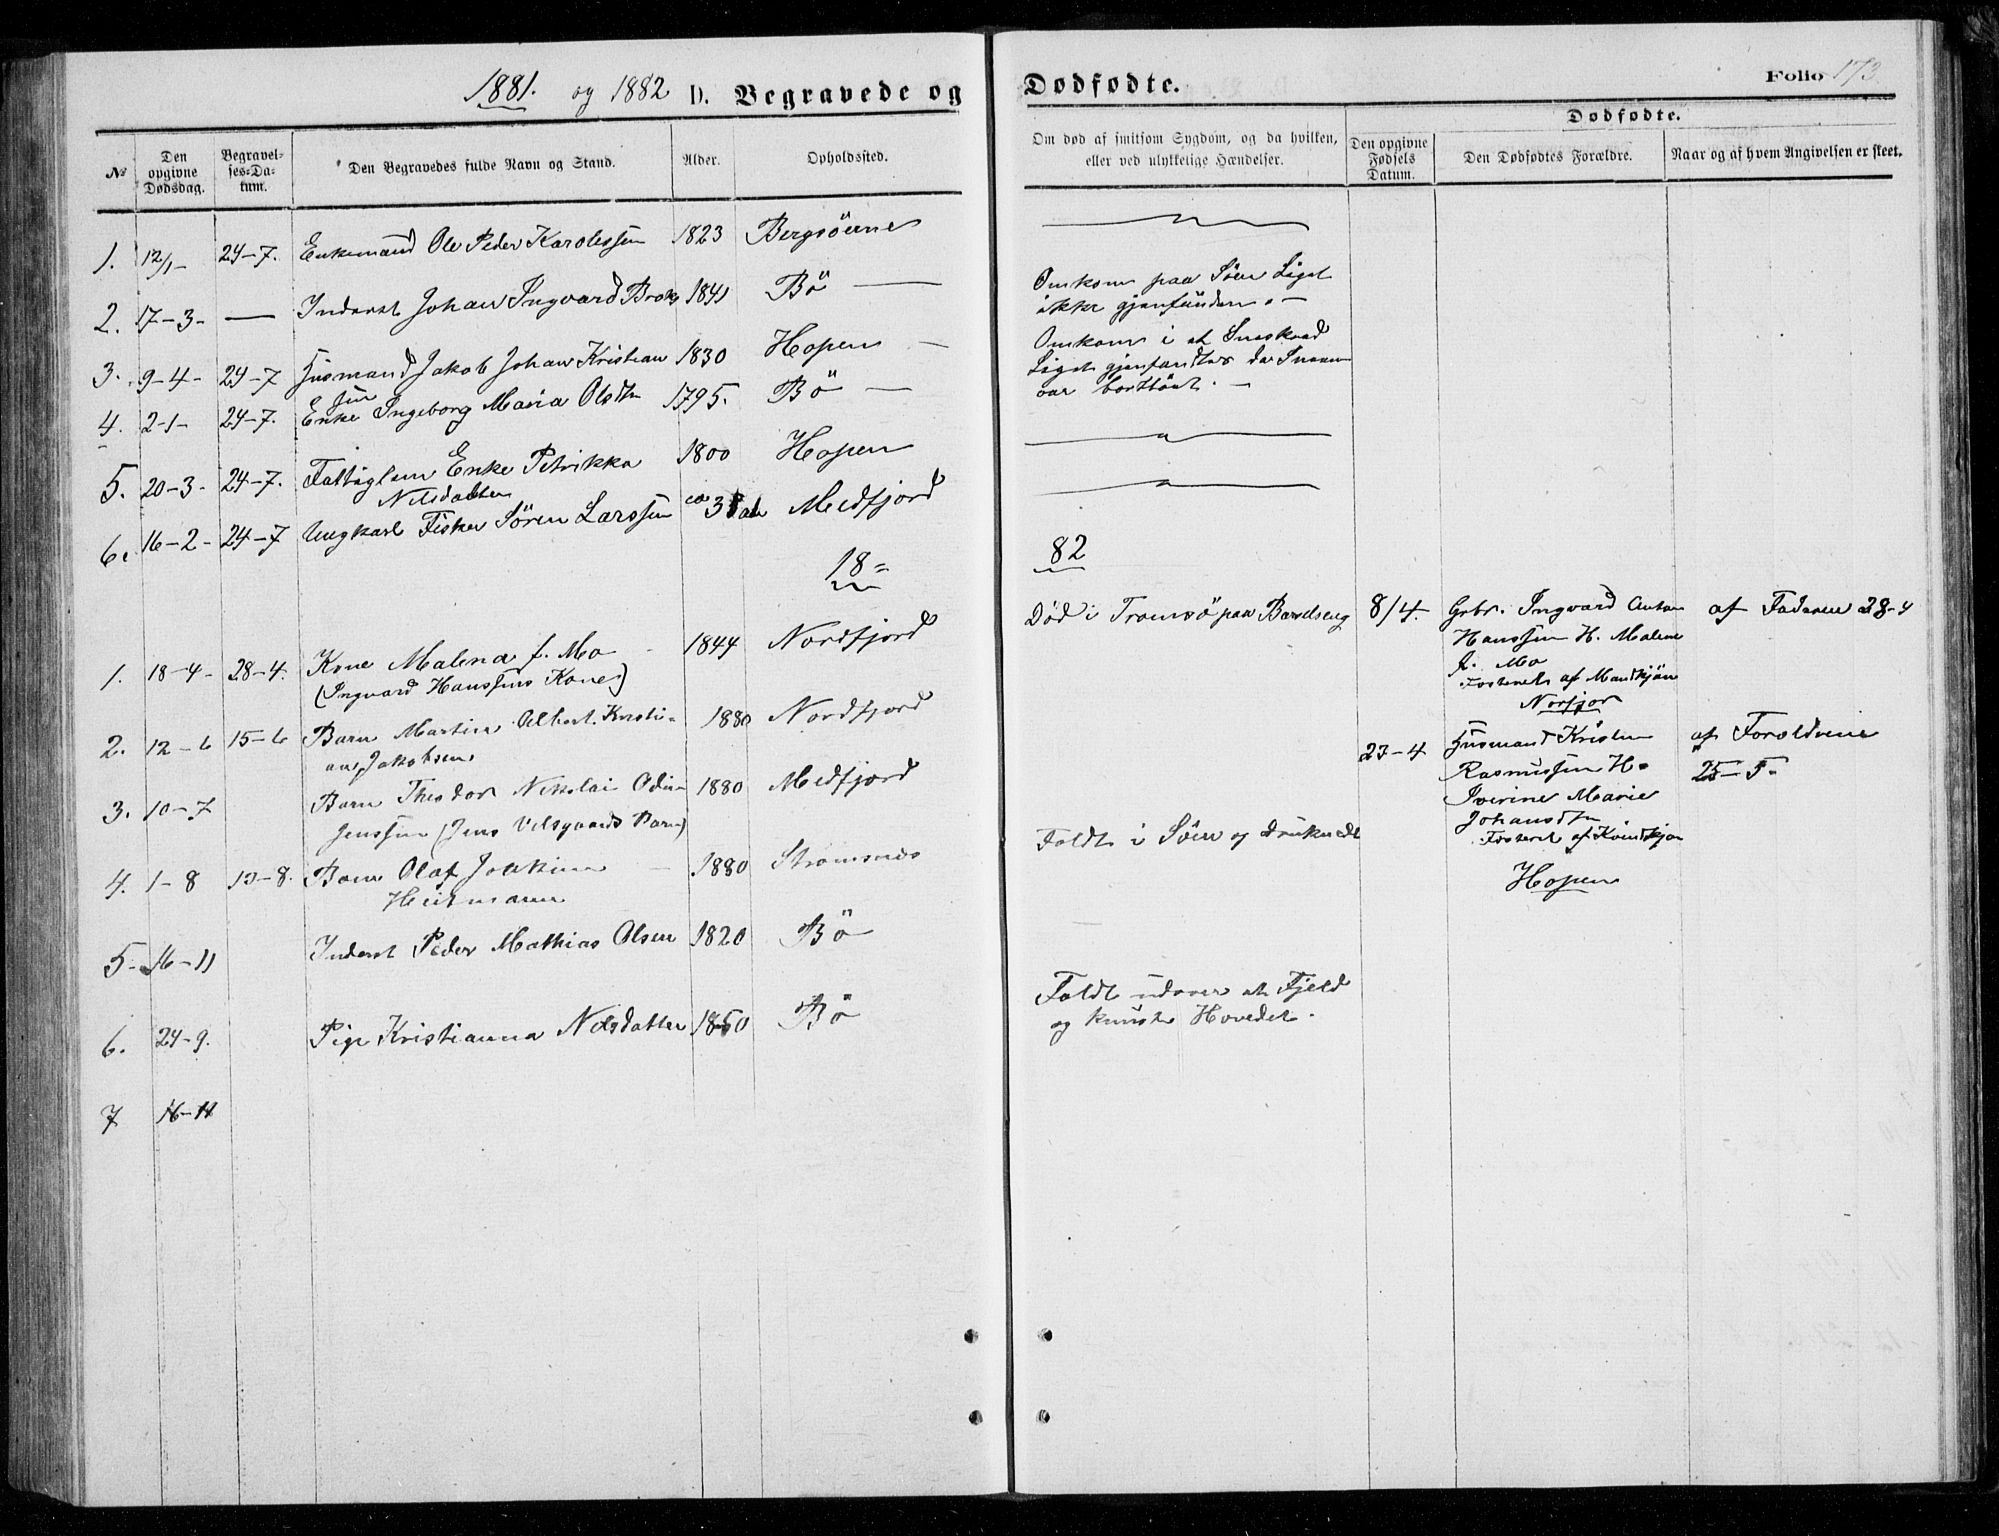 1881. og 1882 D. Begravede og
No
Den opgivne Dødsdag.
Begravelses-Datum.
Den Begravedes fulde Navn og Stand.
Alder.
Opholdssted.
1. 12/1- 24-7. Enkemand Ole Peder Karolessen 1823 Bergsöerne
2. 17-3- — Inderst Johan Ingvard 1841 Bö —
3. 9-4- 24-7 Husmand Jakob Johan Kristian 1830 Hopen —
sen
4. 2-1- 24-7. Enke Ingeborg Maria Olsdtn 1795. Bö —
5. 20-3- 24-7. Fattiglem Enke Petrikka 1800 Hopen
Nilsdatter
6. 16-2- 24-7 Ungkarl Fisker Sören Larssen ca Medfjord
18=
1. 18-4- 28-4. Kone Malena f. Mo 1844 Nordfjord
(Ingvard Hanssens Kone)
2. 12-6 15-6 Barn Martin Albert Kristi- 1880 Nordfjord
an Jakobsen
3. 10-7 Barn Theodor Nikolai Odin 1880 Medfjord
Jenssen (Jens Barn)
4. 1-8 13-8. Barn Olaf Joakim 1880 Stromsnes
Heitmann
5- 16-11 Inderst Peder Mathias Olsen 1820 Bö
6. 24-9. Pige Kristianna Nilsdatter 1850 Bö
7 16-11
Dødfødte.
Folio 173
Om død af smitsom Sygdom, og da hvilken,
eller ved ulykkelige Hændelser.
Dødfødte.
Den opgivne Fødsels Datum.
Den Dødfødtes Forældre.
Naar og af hvem Angivelsen er skeet.
Omkom paa Söen Liget
ikke gjenfunden. —
Omkom i et Sneskred
Liget gjenfandtes da Sneen
var borttöet. —
82
Död i Tromsö paa Barselseng 8/4. Gbr. Ingvard Anton af Faderen 28-4
Hanssen H. Malene
f. Mo
Fosteret af Mandkjön
Norfjor
23-4 Husmand Kristen af Foroldrene
Rasmussen H= 25-5-
Iverine Marie
Johansdtn
Fosteret af Kvindkjøn
Hopen
Faldt i Söen og druknede
Faldt udover et Fjeld
og knuste Hovedet.